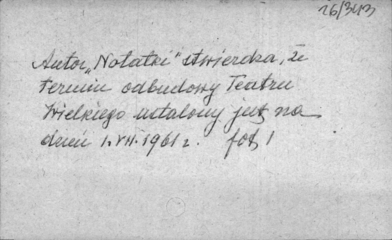 16/343
Autor „Notatki” stwierdza, że
termin odbudowy Teatru
Wielkiego ustalony jest na
dzień 1.VII.1961 r. fot 1